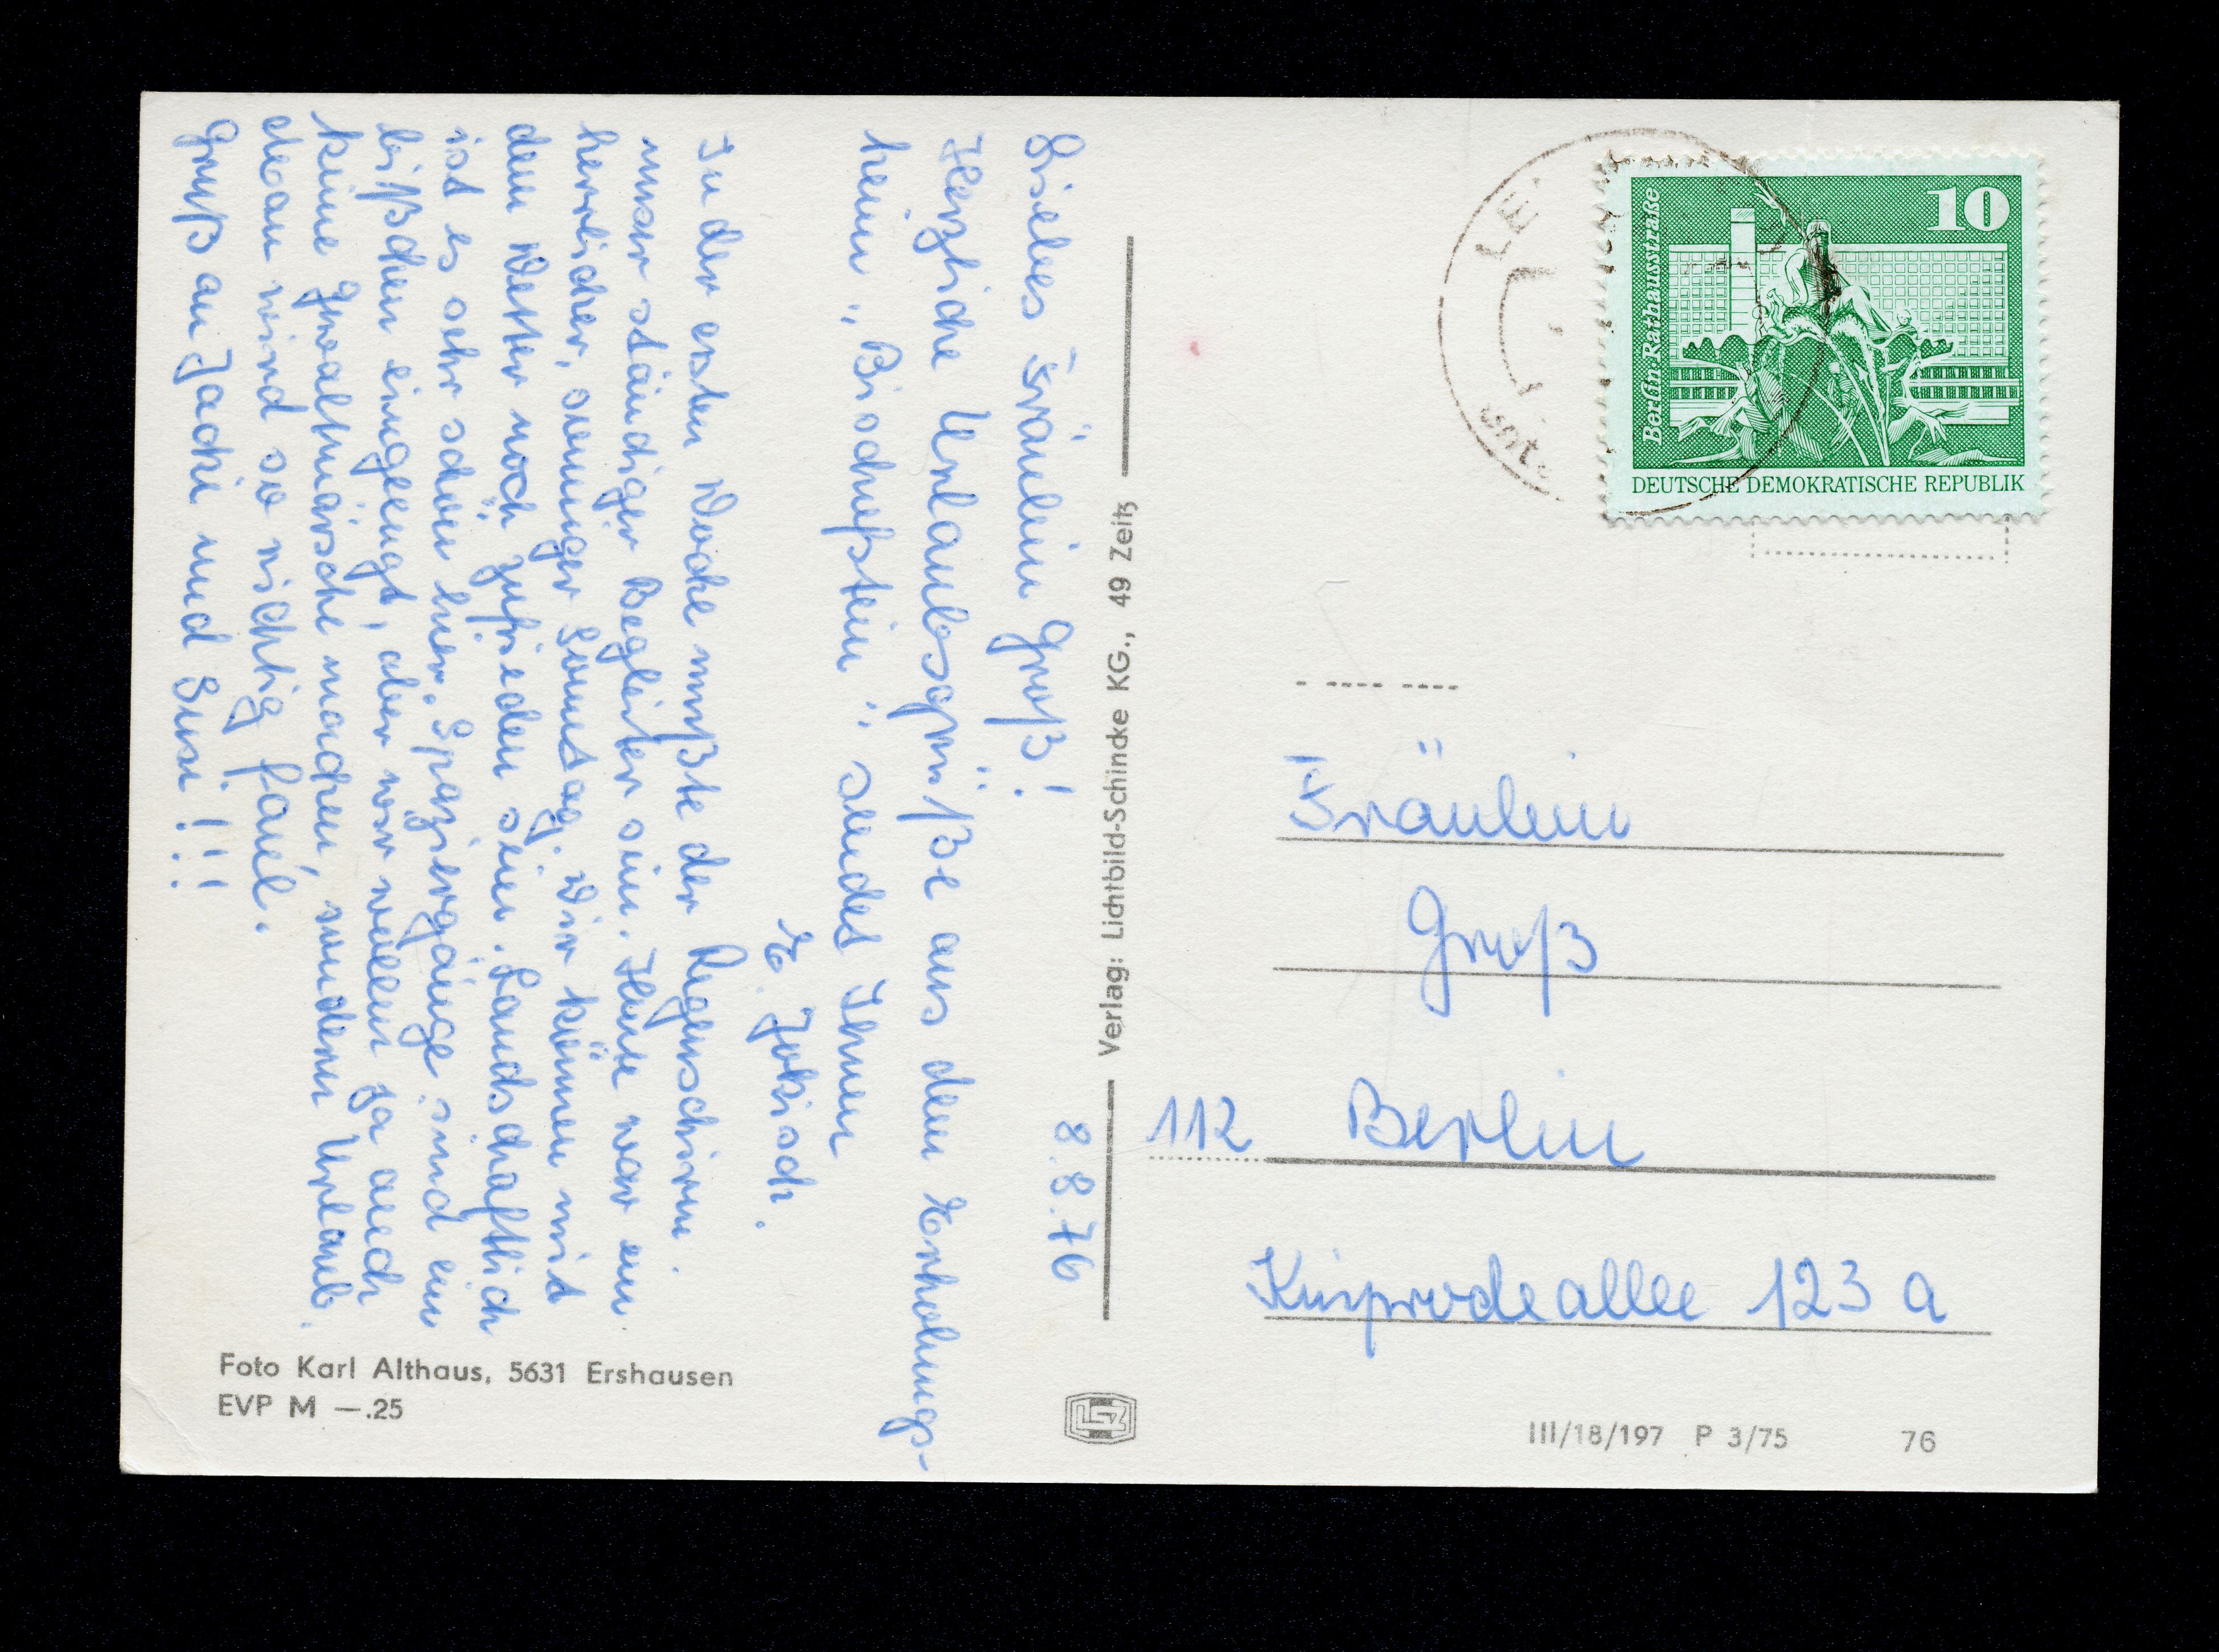 8.8.76
Liebes Fräulein Groß!
Herzliche Urlaubsgrüße aus dem Erholungs-
heim "Bischofstein" sendet Ihnen
E. Jokisch.
In der ersten Woche mußte der Regenschirm
unser ständiger Begleiter sein. Heute war ein
herrlicher, sonniger Sonntag. Wir können mit
dem Wetter noch zufrieden sein. Landschaftlich
ist es sehr schön hier. Spaziergänge sind ein
bißchen eingeengt, aber wir wollen ja auch
keine Gewaltmärsche machen, sondern Urlaub.
dean wird so richtig faul.
Gruß an Jacki und Susi!!!
Foto Karl Althaus, 5631 Ershausen
EVP M —.25
Verlag: Lichtbild-Schincke KG., 49 Zeitz
LSZ
10
Berlin Rathausstraße
DEUTSCHE DEMOKRATISCHE REPUBLIK
Fräulein
Groß
112 Berlin
Kniprodeallee 123 a
III/18/197 P 3/75 76